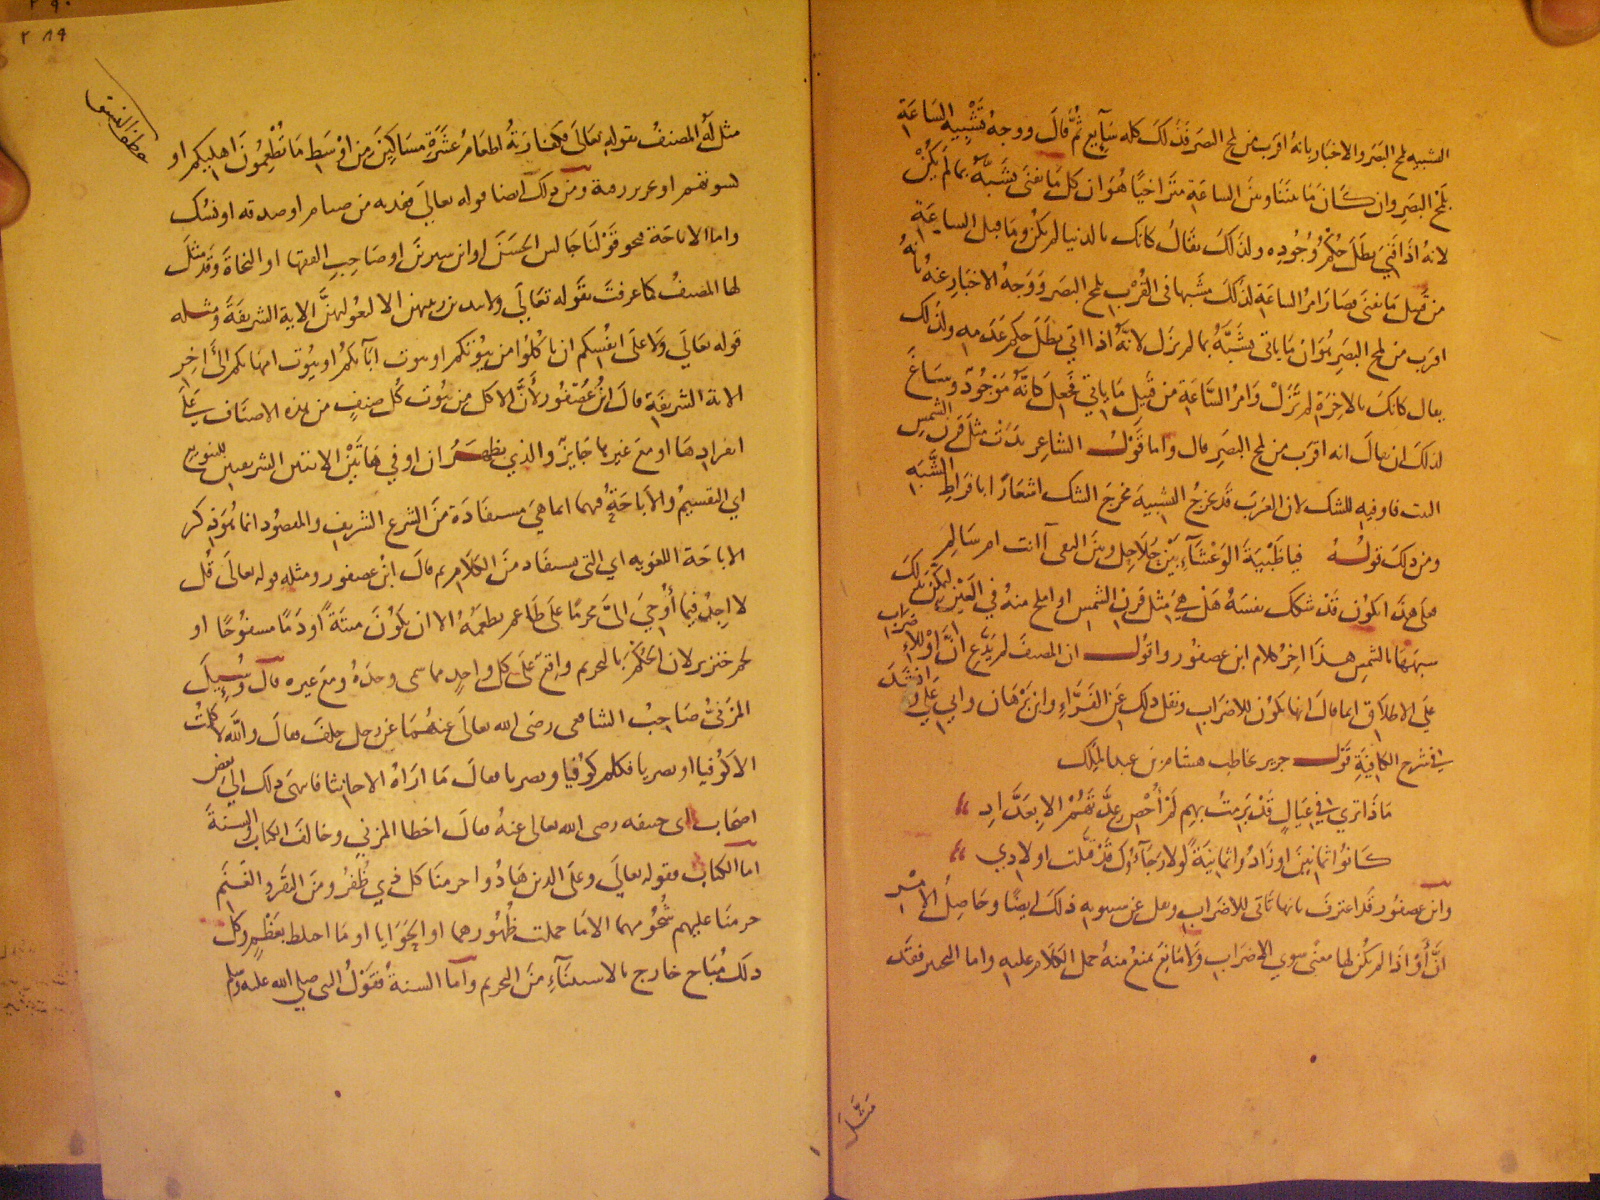 التشبيه بلمح البصر والاخبار بانه اقرب من لمح البصر فذلك كله سايغ ثم قال ووجه تشبيه الساعة
بلمح البصر وان كان ما بيننا وبين الساعة متراخيا هو ان كل ما يفنى يشبه بما لم يكن
لانه اذا فني بطل حكم وجوده ولذلك يقال كانك بالدنيا لم تكن وما قبل الساعة
من قبيل ما يفنى فصار امر الساعة لذلك مشبها في القرب بلمح البصر ووجه الاخبار عنه بانه
اقرب من لمح البصر هو ان ما ياتي يشبه بما لم يزل لانه اذا اتي بطل حكم عدمه ولذلك
يقال كانك بالاخرة لم تزل وامر الساعة من قبيل ما ياتي فجعل كانه موجود وساغ
لذلك ان يقال انه اقرب من لمح البصر قال واما قول الشاعر بدت مثل قرن الشمس
البيت فاو فيه للشك لان العرب قد تخرج التشبيه مخرج الشك اشعارا بافراط الشبه
ومن ذلك قوله فيا ظبية الوعساء بين جلاجل وبين النقى آانت ام سالم
فعلى هذا يكون قد شكك نفسه هل هي مثل قرن الشمس او املح منه في العين ليمكن بذلك
شبهها بالشمس هذا اخر كلام ابن عصفور واقول ان المصنف لم يدع ان او للاضراب
على الاطلاق انما قال انها تكون للاضراب ونقل ذلك عن الفراء وابن برهان وابي علي وانشد
في شرح الكافية قول جرير يخاطب هشام بن عبد الملك
ماذا تري في عيال قد برمت بهم لم أحص عدتهم الا بعداد
كانوا ثمانين او زادوا ثمانية لولا رجاؤك قد قتلت اولادي
وابن عصفور قد اعترف بانها تاتي للاضراب ونقل عن سيبويه ذلك ايضا وحاصل الامر
ان أو اذا لم يكن لها معنى سوي الاضراب ولا مانع يمنع منه حمل الكلام عليه واما التخيير فقد
مثل
٢٨٩
مثل له المصنف بقوله تعالى فكفارته اطعام عشرة مساكين من اوسط ما تطعمون اهليكم او
كسوتهم او تحرير رقبة ومن ذلك ايضا قوله تعالى ففدية من صيام او صدقة او نسك
واما الاباحة فنحو قولنا جالس الحسن او ابن سيرين او صاحب الفقها او النحاة وقد مثل
لها المصنف كما عرفت بقوله تعالي ولا يبدين زينتهن الا لبعولتهن الاية الشريفة ومثله
قوله تعالي ولا على انفسكم ان تاكلوا من بيوتكم او بيوت ابائكم او بيوت امهاتكم الى اخر
الاية الشريفة قال ابن عصفور لأن الاكل من بيوت كل صنف من هذه الاصناف على
انفرادها او مع غيرها جايز والذي يظهر ان او في هاتين الايتين الشريفتين للتنويع
اي التقسيم والاباحة فيهما انما هي مستفادة من الشرع الشريف والمقصود انما هو ذكر
الاباحة اللغويه اي التى تستفاد من الكلام ثم قال ابن عصفور ومثله قوله تعالى قل
لا اجد فيما أوحي الى محرما على طاعم يطعمه الا ان يكون ميتة او دما مسفوحا او
لحم خنزير لان الحكم بالتحريم واقع على كل واحد مما سمى وحده ومع غيره قال وسيل
المزني صاحب الشافعى رضى الله تعالى عنهما عن رجل حلف فقال والله لا كلمت
الا كوفيا او بصريا فكلم كوفيا وبصريا فقال ما اراه الا حانثا فانهى ذلك الى بعض
اصحاب ابى حنيفه رضى الله تعالى عنه فقال اخطا المزني وخالف الكتاب والسنة
اما الكتاب فقوله تعالي وعلى الذين هادوا حرمنا كل ذي ظفر ومن البقر والغنم
حرمنا عليهم شحومهما الا ما حملت ظهورهما او الحوايا او ما اختلط بعظم وكل
ذلك مباح خارج بالاستثناء من التحريم واما السنة فقول النبى صلي الله عليه وسلم